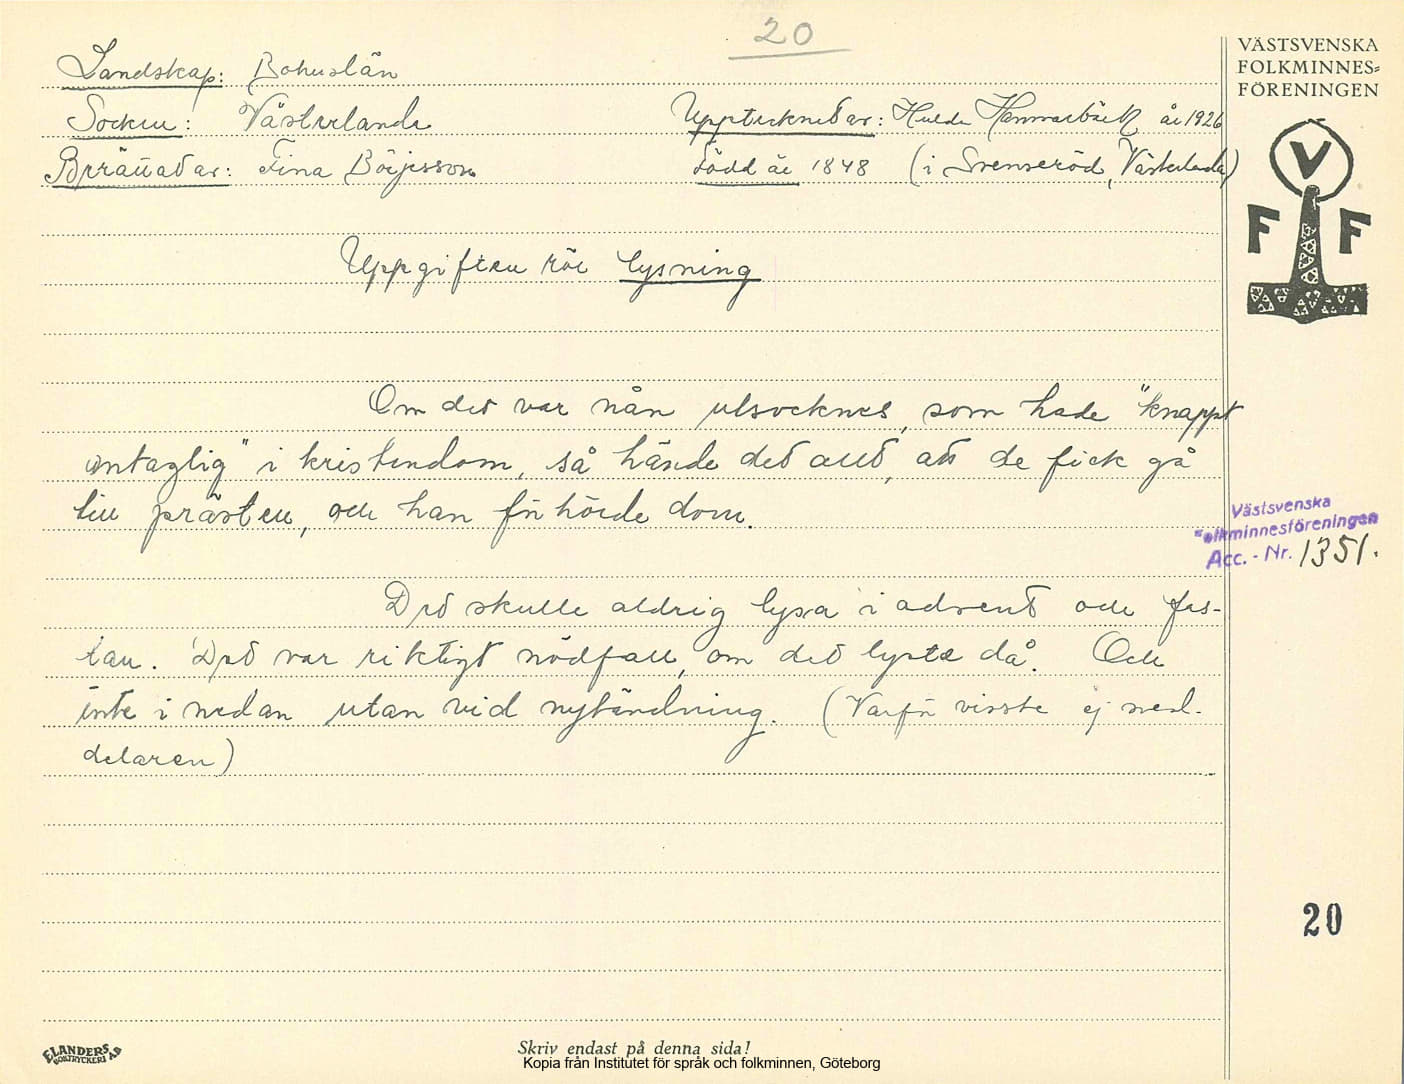 20
VÄSTSVENSKA
FOLKMINNES=
FÖRENINGEN
Landskap: Bohuslän
Socken: Västerlanda Upptecknat av: Hulda Hammarbäck år 1926
Berättat av: Fina Börjesson född år 1848 (i Svenseröd, Västerlanda)
V
F F
Uppgiften rör lysning
Om det var nån utsocknes, som hade "knappt
antaglig" i kristendom, så hände det allt, att de fick gå
till prästen, och han förhörde dom.
Västsvenska
Folkminnesföreningen
Acc. - Nr. 1351.
Det skulle aldrig lysa i advent och fas-
tan. Det var riktigt nödfall, om det lyste då. Och
inte i nedan utan vid nytändning. (Varför visste ej med-
delaren)
20
ELANDERS
BOKTRYCKERI AB
Skriv endast på denna sida!
Kopia från Institutet för språk och folkminnen, Göteborg